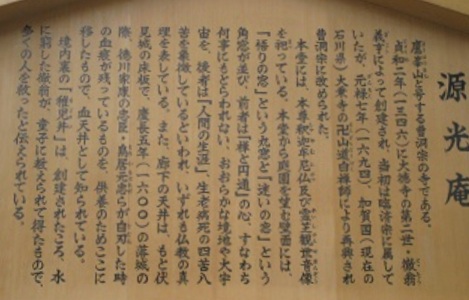 源光庵
鷹峯山と号する曹洞宗の寺である。
貞和二年（一三四六）に大徳寺の第二世・徹翁
義亨によって創建され、当初は臨済宗に属して
いたが、元禄七年（一六九四）、加賀国（現在の
石川県）大乗寺の卍山道白禅師により再興され
曹洞宗に改められた。
本堂には、本尊釈迦牟尼仏及び霊芝観世音像
を祀っている。本堂から庭園を望む壁面には、
「悟りの窓」という丸窓と「迷いの窓」という
角窓が並び、前者は「禅と円通」の心、すなわち
何事にもとらわれない、おおらかな境地や大宇
宙を、後者は「人間の生涯」、生老病死の四苦八
苦を象徴しているといわれ、いずれも仏教の真
理を表している。また、廊下の天井は、もと伏
見城の床板で、慶長五年（一六〇〇）の落城の
際、徳川家康の忠臣・鳥居元忠らが自刃した時
の血痕が残っているものを、供養のためここに
移したもので、血天井として知られている。
境内裏の「稚児井」は、創建されたころ、水
に窮した徹翁が、童子に教えられて得たもので、
多くの人を救ったと伝えられている。